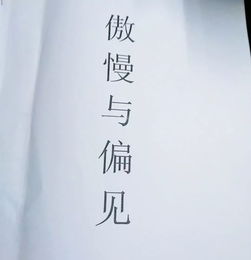 傲慢与偏见